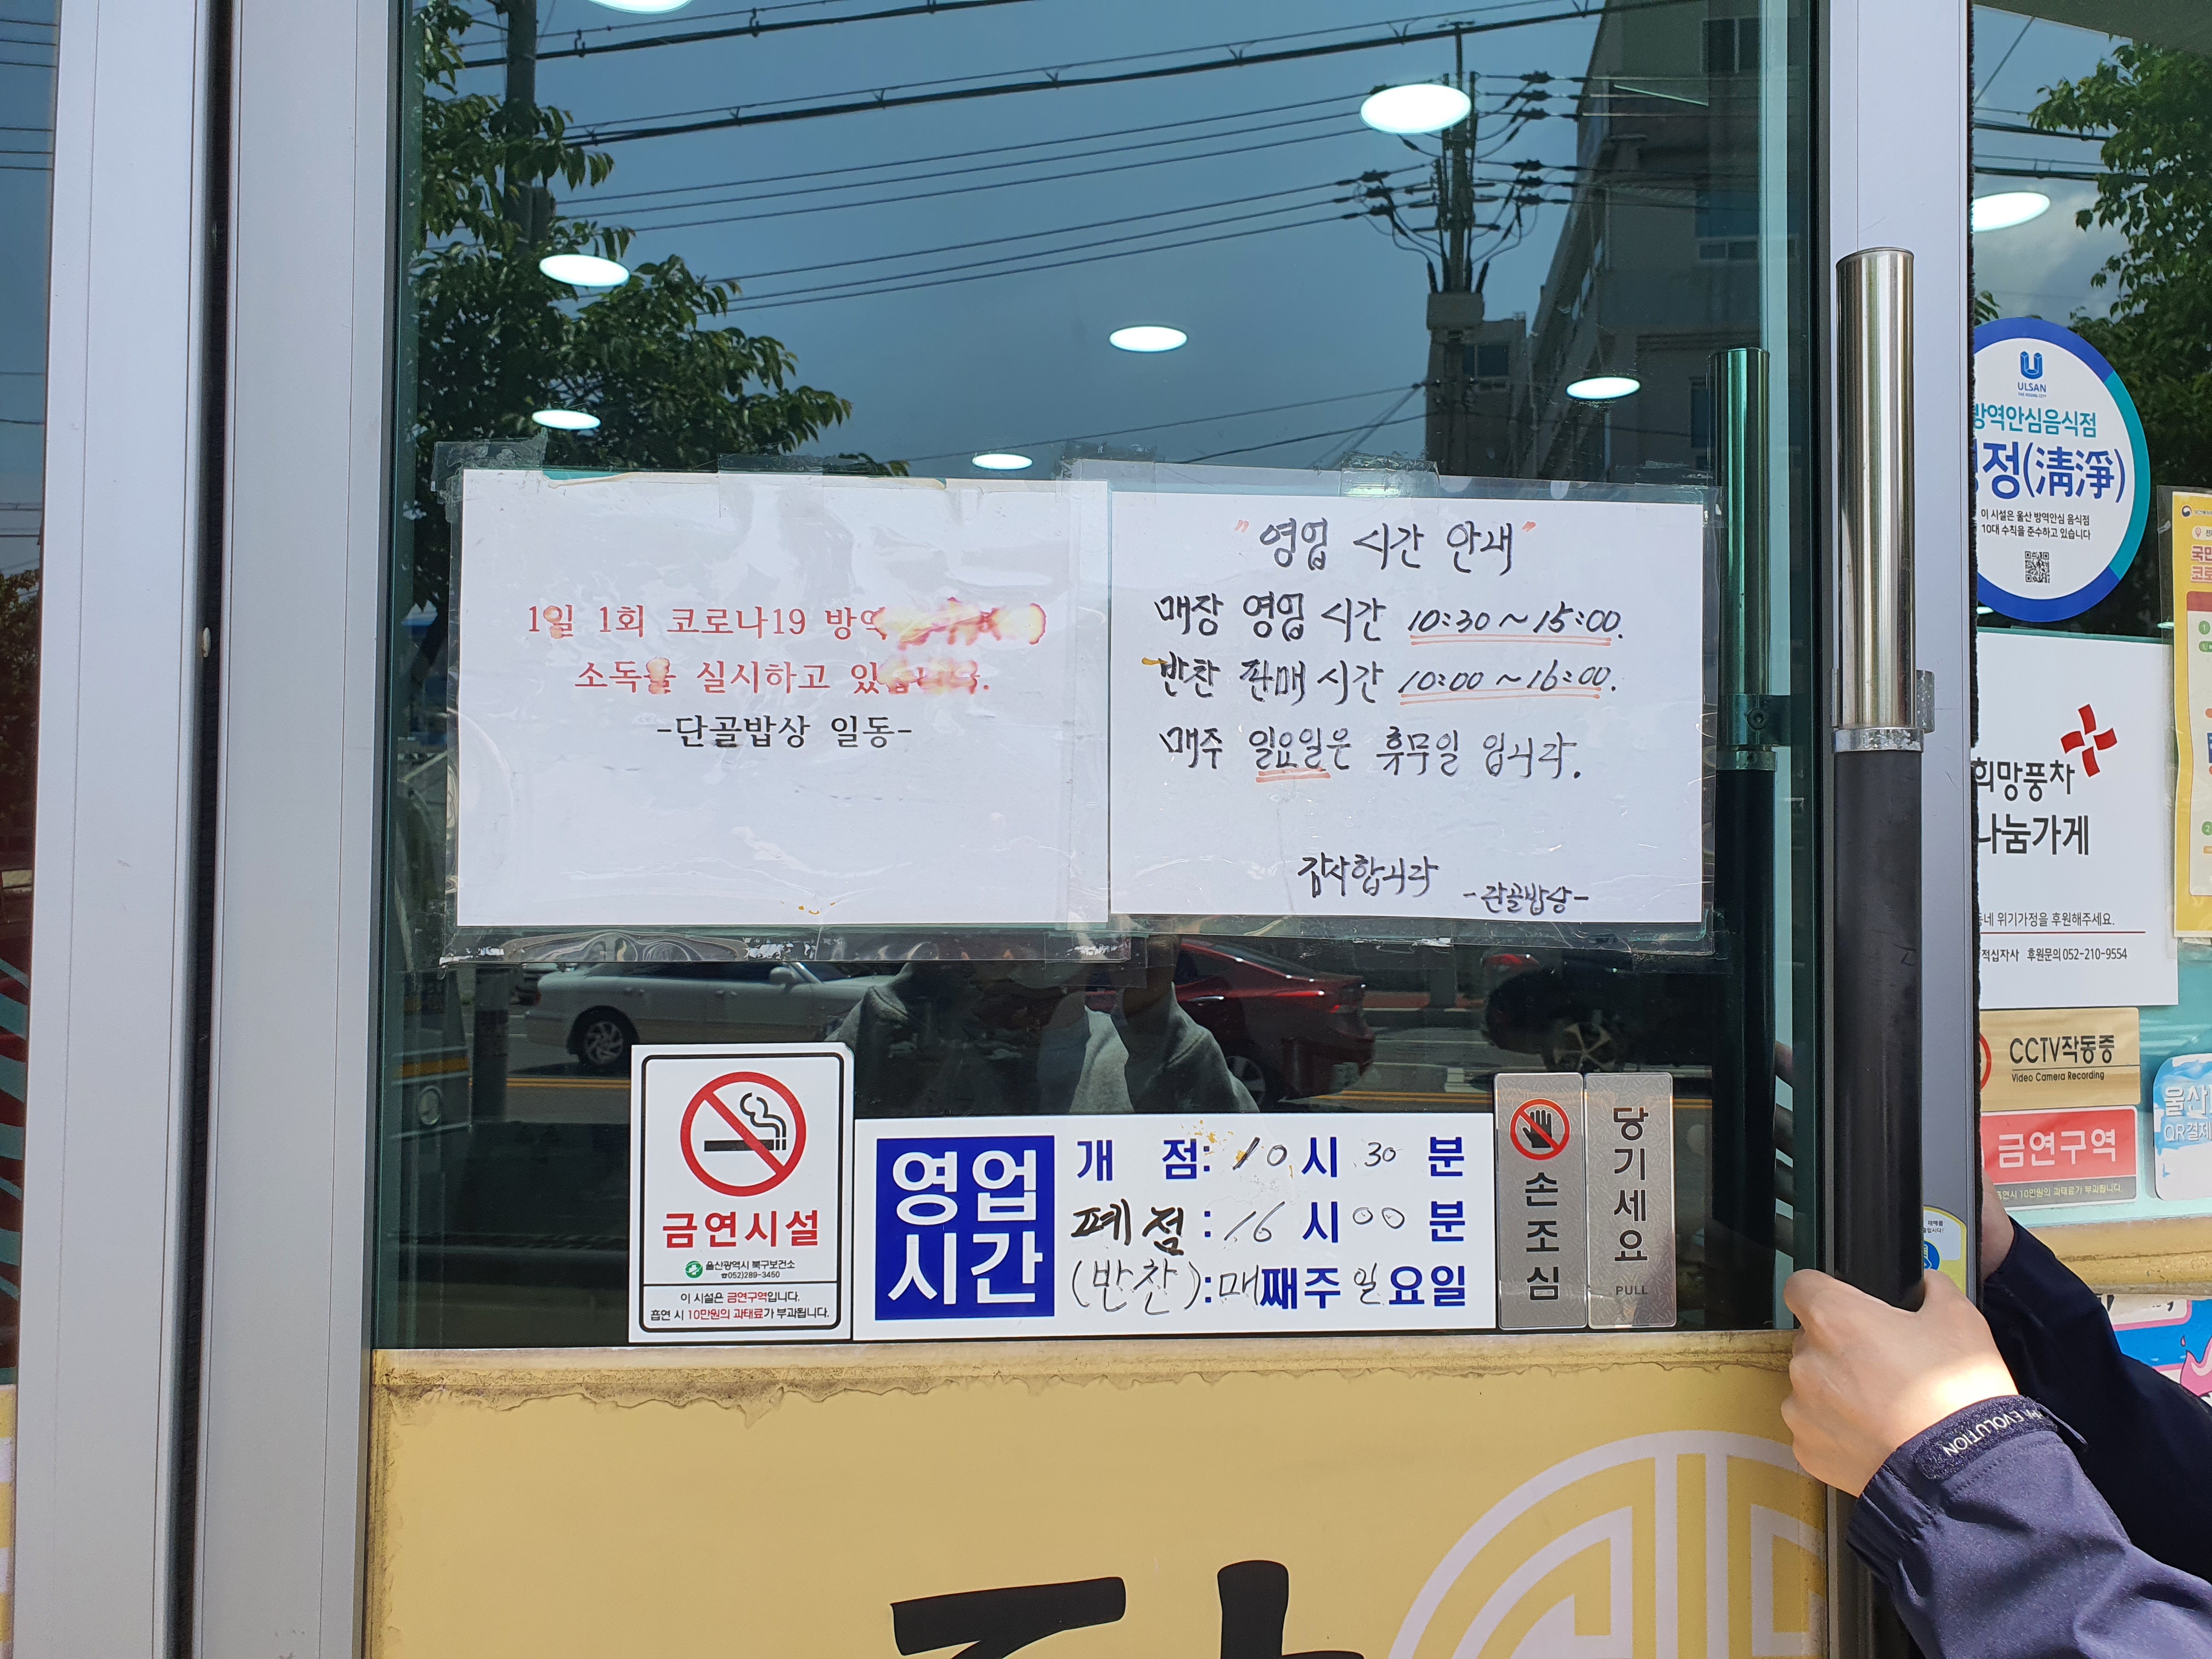 1일 1회 코로나19 방역
소독을 실시하고 있습니다.
-단골밥상 일동-
"영업 시간 안내"
매장 영업 시간 10:30~15:00.
반찬 판매 시간 10:00~16:00.
매주 일요일은 휴무일 입니다.
감사합니다
-단골밥상-
금연시설
울산광역시 북구보건소
☎052)289-3450
이 시설은 금연구역입니다.
흡연 시 10만원의 과태료가 부과됩니다.
영업
시간
개 점: 10시 30분
폐점: 16시 00분
(반찬): 매째주 일요일
손조심
당기세요
PULL
ULSAN
방역안심음식점
정(清淨)
이 시설은 울산 방역안심 음식점
10대 수칙을 준수하고 있습니다
희망풍차
나눔가게
위기가정을 후원해주세요.
적십자사 후원문의 052-210-9554
CCTV작동중
Video Camera Recording
금연구역
흡연시 10만원의 과태료가 부과됩니다.
울산
QR결제
EVOLUTION